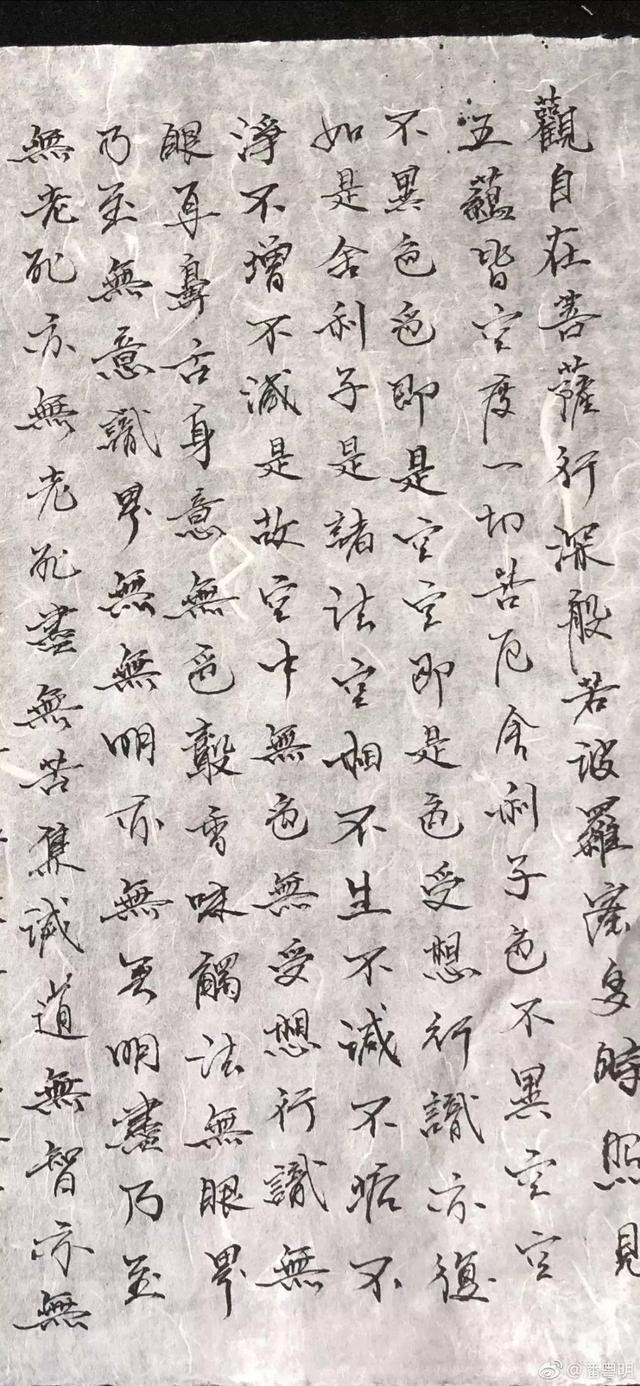 觀自在菩薩行深般若波羅蜜多時照見
五蘊皆空度一切苦厄舍利子色不異空空
不異色色即是空空即是色受想行識亦復
如是舍利子是諸法空相不生不滅不垢不
淨不增不減是故空中無色無受想行識無
眼耳鼻舌身意無色聲香味觸法無眼界
乃至無意識界無無明亦無無明盡乃至
無老死亦無老死盡無苦集滅道無智亦無
@潘粤明